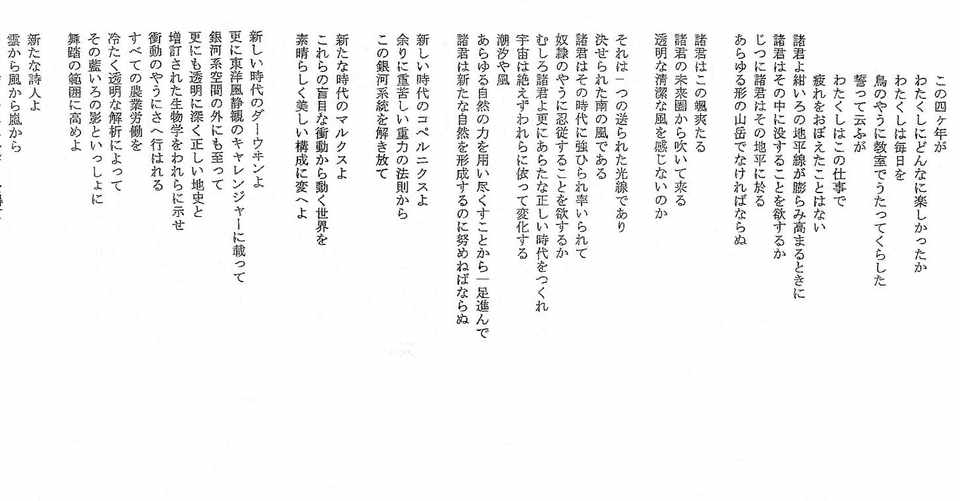 この四ヶ年が
わたくしにどんなに楽しかったか
わたくしは毎日を
鳥のやうに教室でうたってくらした
誓って云ふが
わたくしはこの仕事で
疲れをおぼえたことはない
諸君よ紺いろの地平線が膨らみ高まるときに
諸君はその中に没することを欲するか
じつに諸君はその地平に於る
あらゆる形の山岳でなければならぬ
諸君はこの颯爽たる
諸君の未来圏から吹いて来る
透明な清潔な風を感じないのか
それは一つの送られた光線であり
決せられた南の風である
諸君はその時代に強ひられ率いられて
奴隷のやうに忍従することを欲するか
むしろ諸君よ更にあらたな正しい時代をつくれ
宇宙は絶えずわれらに依って変化する
潮汐や風
あらゆる自然の力を用い尽くすことから一足進んで
諸君は新たな自然を形成するのに努めねばならぬ
新しい時代のコペルニクスよ
余りに重苦しい重力の法則から
この銀河系統を解き放て
新たな時代のマルクスよ
これらの盲目な衝動から動く世界を
素晴らしく美しい構成に変へよ
新しい時代のダーウヰンよ
更に東洋風静観のキャレンジャーに載って
銀河系空間の外にも至って
更にも透明に深く正しい地史と
増訂された生物学をわれらに示せ
衝動のやうにさへ行はれる
すべての農業労働を
冷たく透明な解析によって
その藍いろの影といっしょに
舞踏の範囲に高めよ
新たな詩人よ
雲から風から嵐から